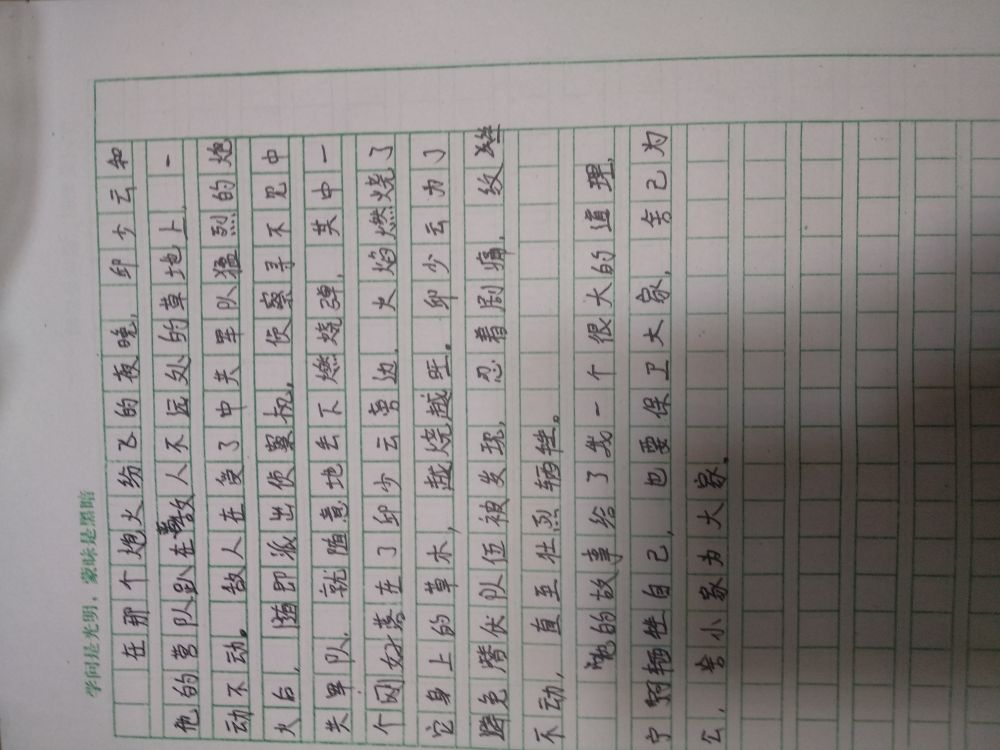 学问是光明，蒙昧是黑暗
在那个炮火纷飞的夜晚，邱少云和
他的营队趴在离敌人不远处的草地上，一
动不动。敌人在受了中共军队猛烈的炮
火后，随即派出侦翼机，侦察寻不见中
共军队，就随意地丢下燃烧弹，其中一
个刚好落在了邱少云旁边，火焰燃烧了
它身上的草木，越烧越旺。邱少云为了
避免潜伏队伍被发现，忍着剧痛，纹丝
不动，直至壮烈牺牲。
他的故事给了我一个很大的道理，
宁牺牲自己，也要保卫大家，舍己为
公，舍小家为大家。